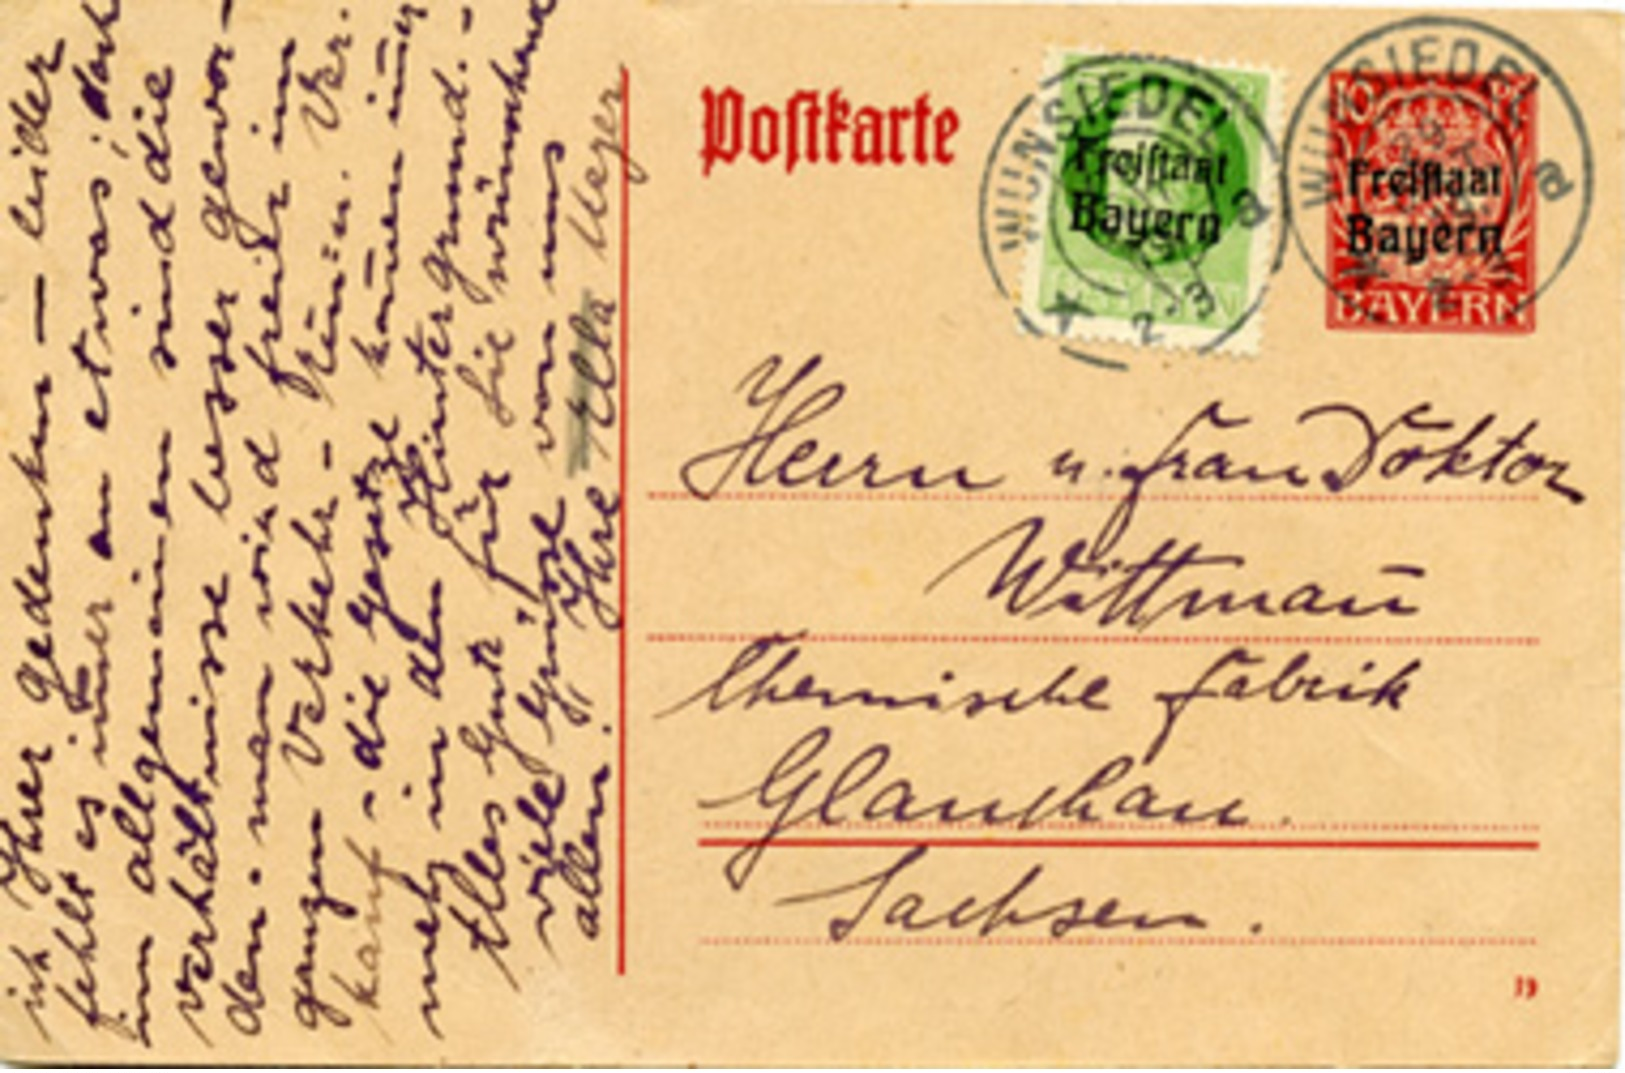 ich Ihrer gedenken — leider
fehlt es im̄er an etwas; doch
im allgemeinen sind die
Verhältnisse besser gewor-
den - man wird freier im
ganzen Verkehr -
kauf - die Gesetze kom̄en im̄er
mehr in den Hintergrund. -
Alles Gute für Sie wünschend
viele Grüsse von uns
allen! Ihre Ella
Postkarte
WUNSIEDEL
a
Freistaat
Bayern
WUNSIEDEL
a
Freistaat
Bayern
BAYERN
Herrn u. Frau Doktor
Wittman̄
Chemische Fabrik
Glauchau.
Sachsen.
19